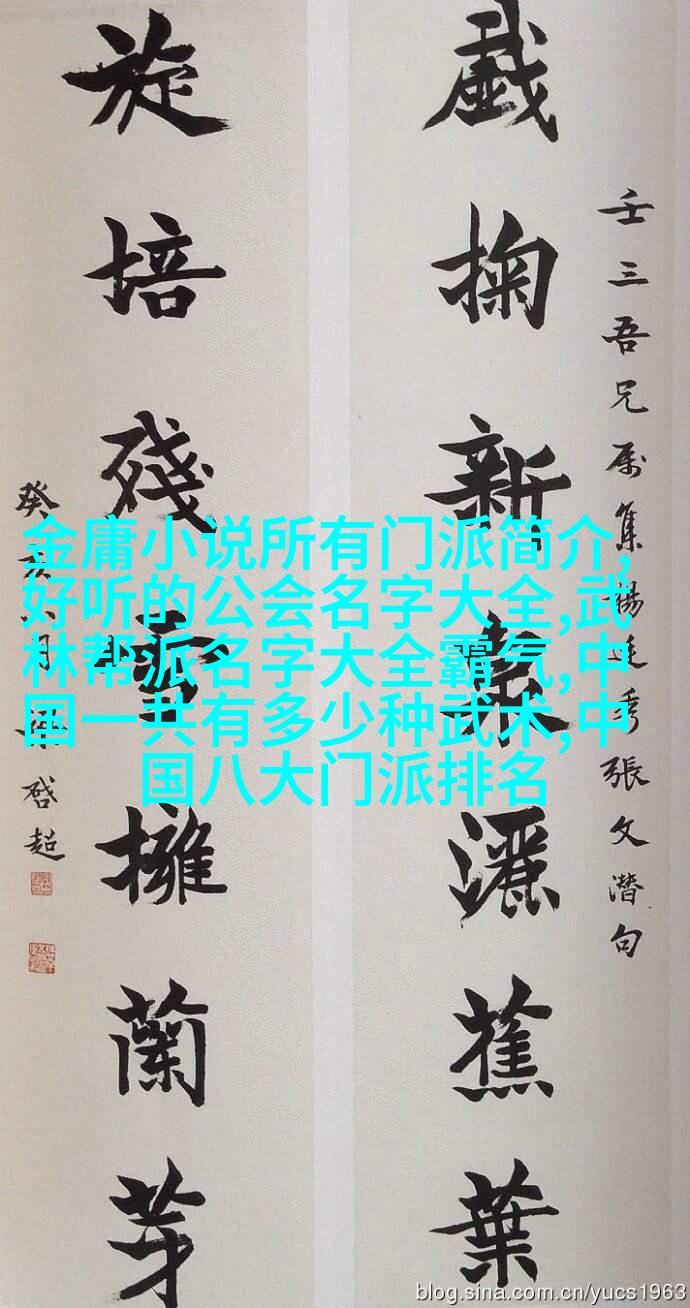 壬三吾兄属集楊廷秀張文潛句
戲掬新泉灑蕉葉
旋培殘雪擁蘭芽
癸亥八月梁啟超
金庸小说所有门派简介,
好听的公会名字大全,武
林帮派名字大全霸气,中
国一共有多少种武术,中
国八大门派排名
blog.sina.com.cn/yucs1963